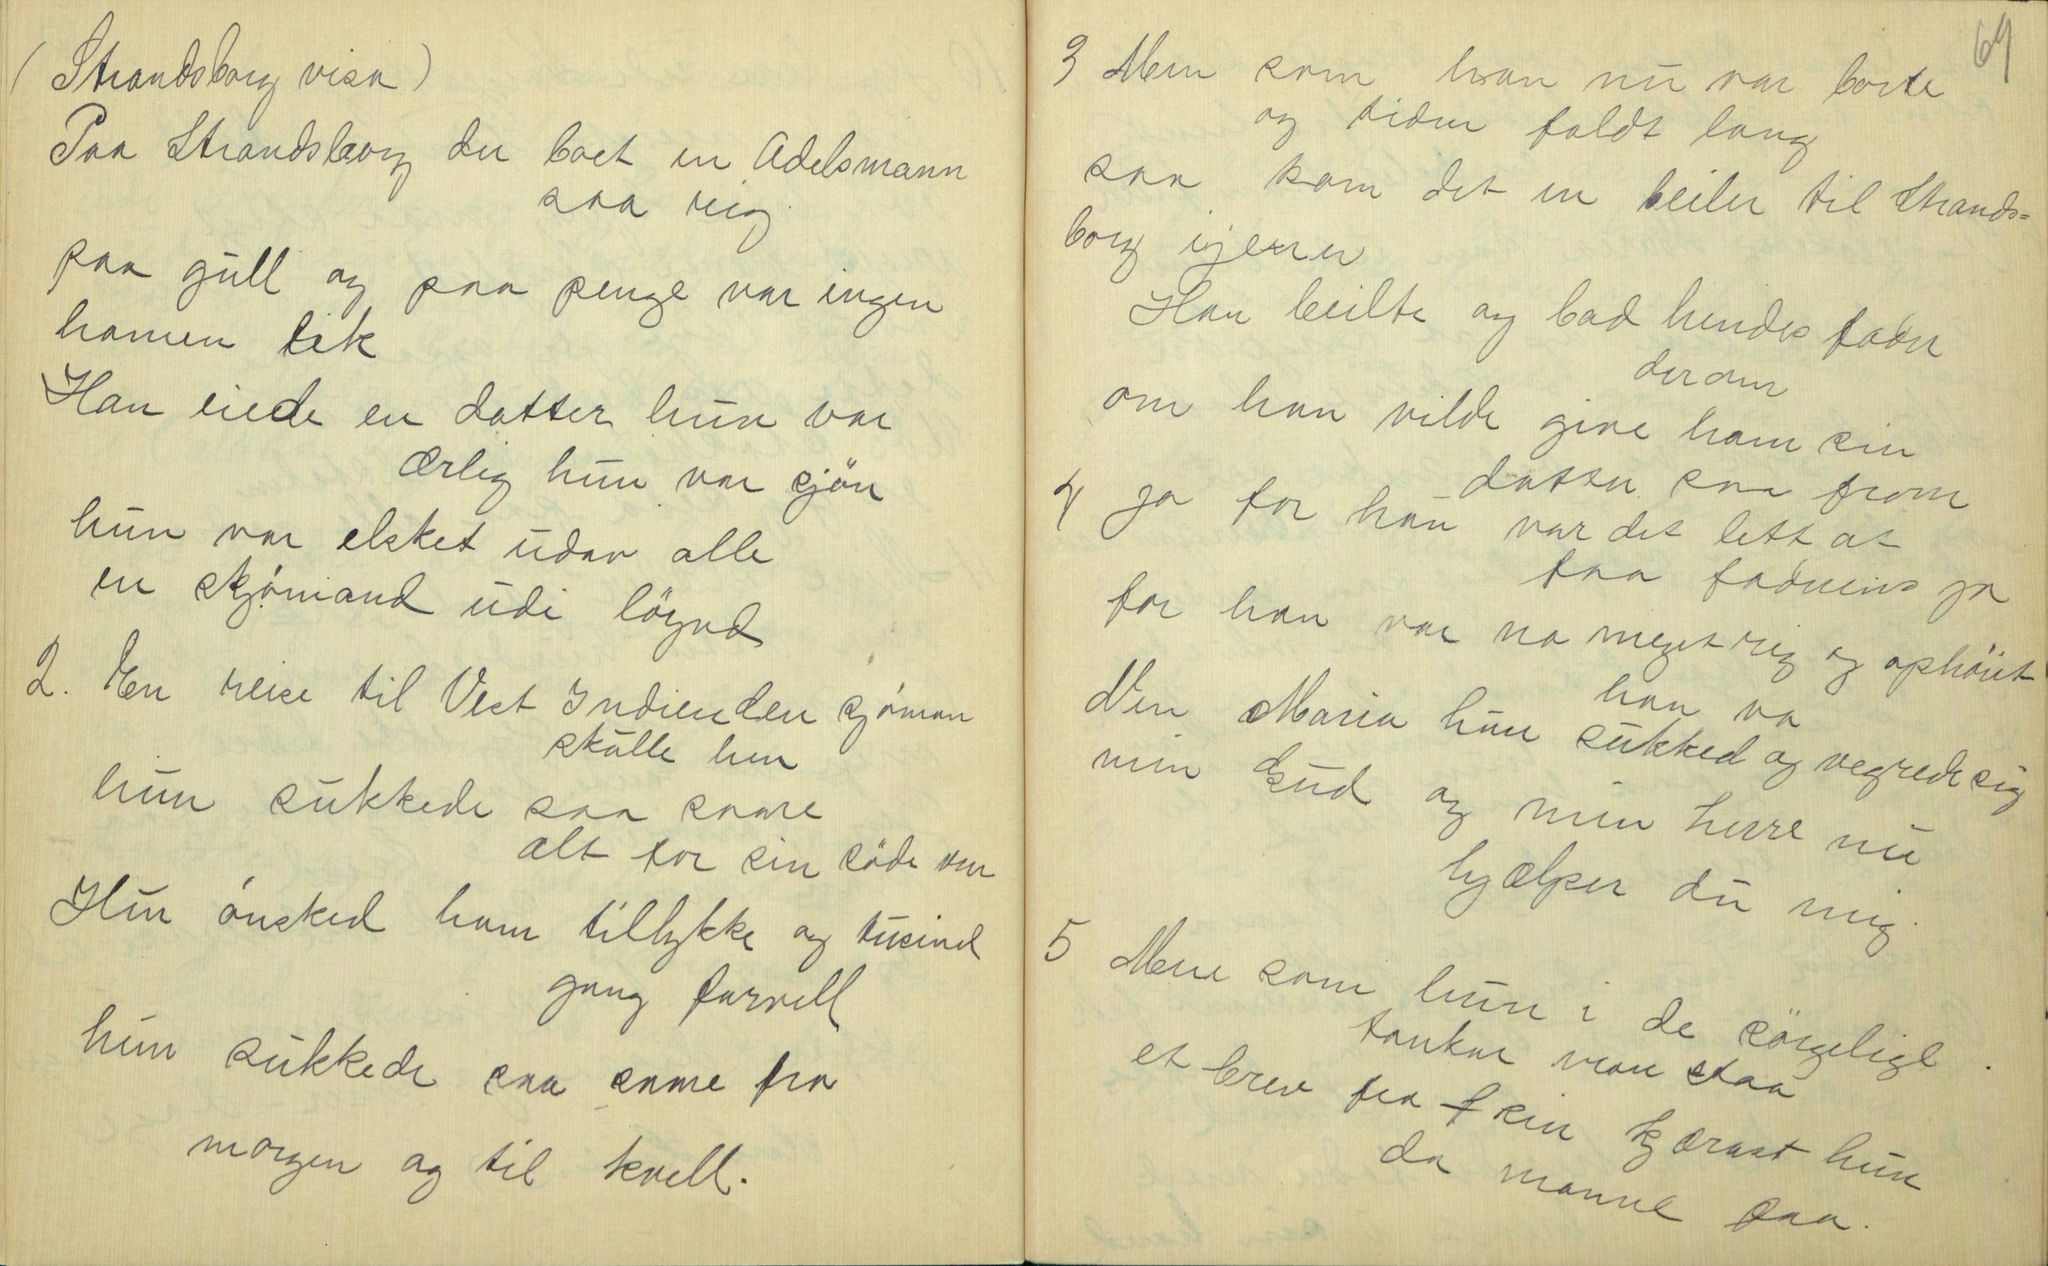 (Strandsborg visa)
Paa Strandsborg der boet en Adelsmann
saa rig
paa gull og paa penge var ingen
hannen lik
Han eiede en datter hun var
ærlig hun var sjön
hun var elsket udav alle
en skjömand udi lögnd
2. En reise til Vest Indien den sjöman
skulle hen
hun sukkede saa saare
alt for sin söde ven
Hun önsked ham tillykke og tusind
gang farvell
hun sukkede saa saare fra
morgen og til kvell.
69
3 Men som han nu var borte
og tiden faldt lang
saa kom det en beiler til Strands=
borg igjenn
Han beilte og bad hendes fader
derom
om han vilde give ham sin
datter saa from
4 ja for han var det lett at
faa faderens ja
for han var na meget rig og ophöiet
han va
Men Maria hun sukked og vegrede sig
min Gud og min herre nu
hjælper du mig.
5 Men som hun i de sörgelige
tankar mon staa
et brev fra sin kjærast hun
da monne faa.